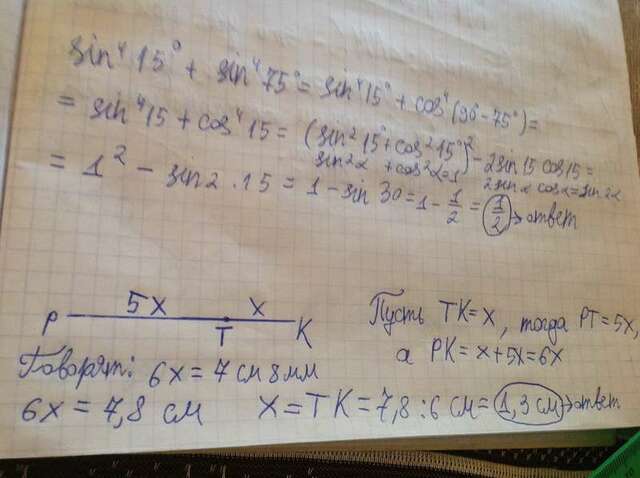 sin⁴ 15° + sin⁴ 75° = sin⁴ 15° + cos⁴ (90 - 75°) =
= sin⁴ 15 + cos⁴ 15 = (sin² 15° + cos² 15°)² - 2 sin 15 cos 15 =
sin² α + cos² α = 1 2 sin α cos α = sin 2α
= 1² - sin 2 · 15 = 1 - sin 30 = 1 - 1/2 = 1/2 → ответ
5x x
P T K
Пусть TK = x, тогда PT = 5x,
а PK = x + 5x = 6x
Говорят: 6x = 7 см 8 мм
6x = 7,8 см x = TK = 7,8 : 6 см = 1,3 см → ответ